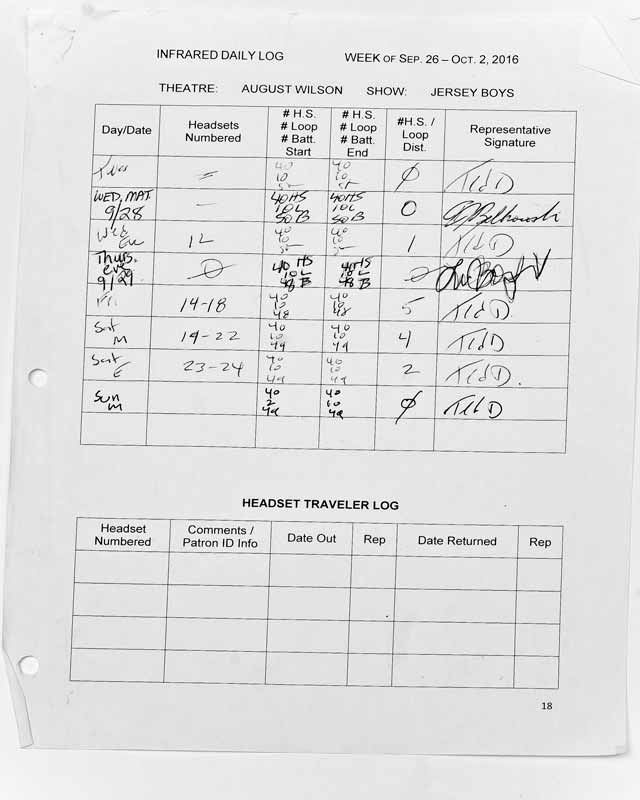 INFRARED DAILY LOG WEEK OF SEP. 26 – OCT. 2, 2016
THEATRE: AUGUST WILSON SHOW: JERSEY BOYS
Day/Date Headsets Numbered # H.S. # Loop # Batt. Start # H.S. # Loop # Batt. End #H.S. / Loop Dist. Representative Signature
Tues – 40 10 40 10 0 Ted D
WED. MAT. 9/28 – 40HS 10L 50B 40HS 10L 50B 0
Wed Eve 12 40 10 40 10 1 Ted D
THURS. eve 9/29 0 40 HS 10 L 48 B 40 HS 10 L 48 B 0
Fri 14-18 40 10 48 40 10 48 5 Ted D
Sat M 19-22 40 10 49 40 10 49 4 Ted D
Sat E 23-24 40 10 49 40 10 49 2 Ted D.
Sun M 40 2 49 40 10 49 0 Ted D
HEADSET TRAVELER LOG
Headset Numbered Comments / Patron ID Info Date Out Rep Date Returned Rep
18